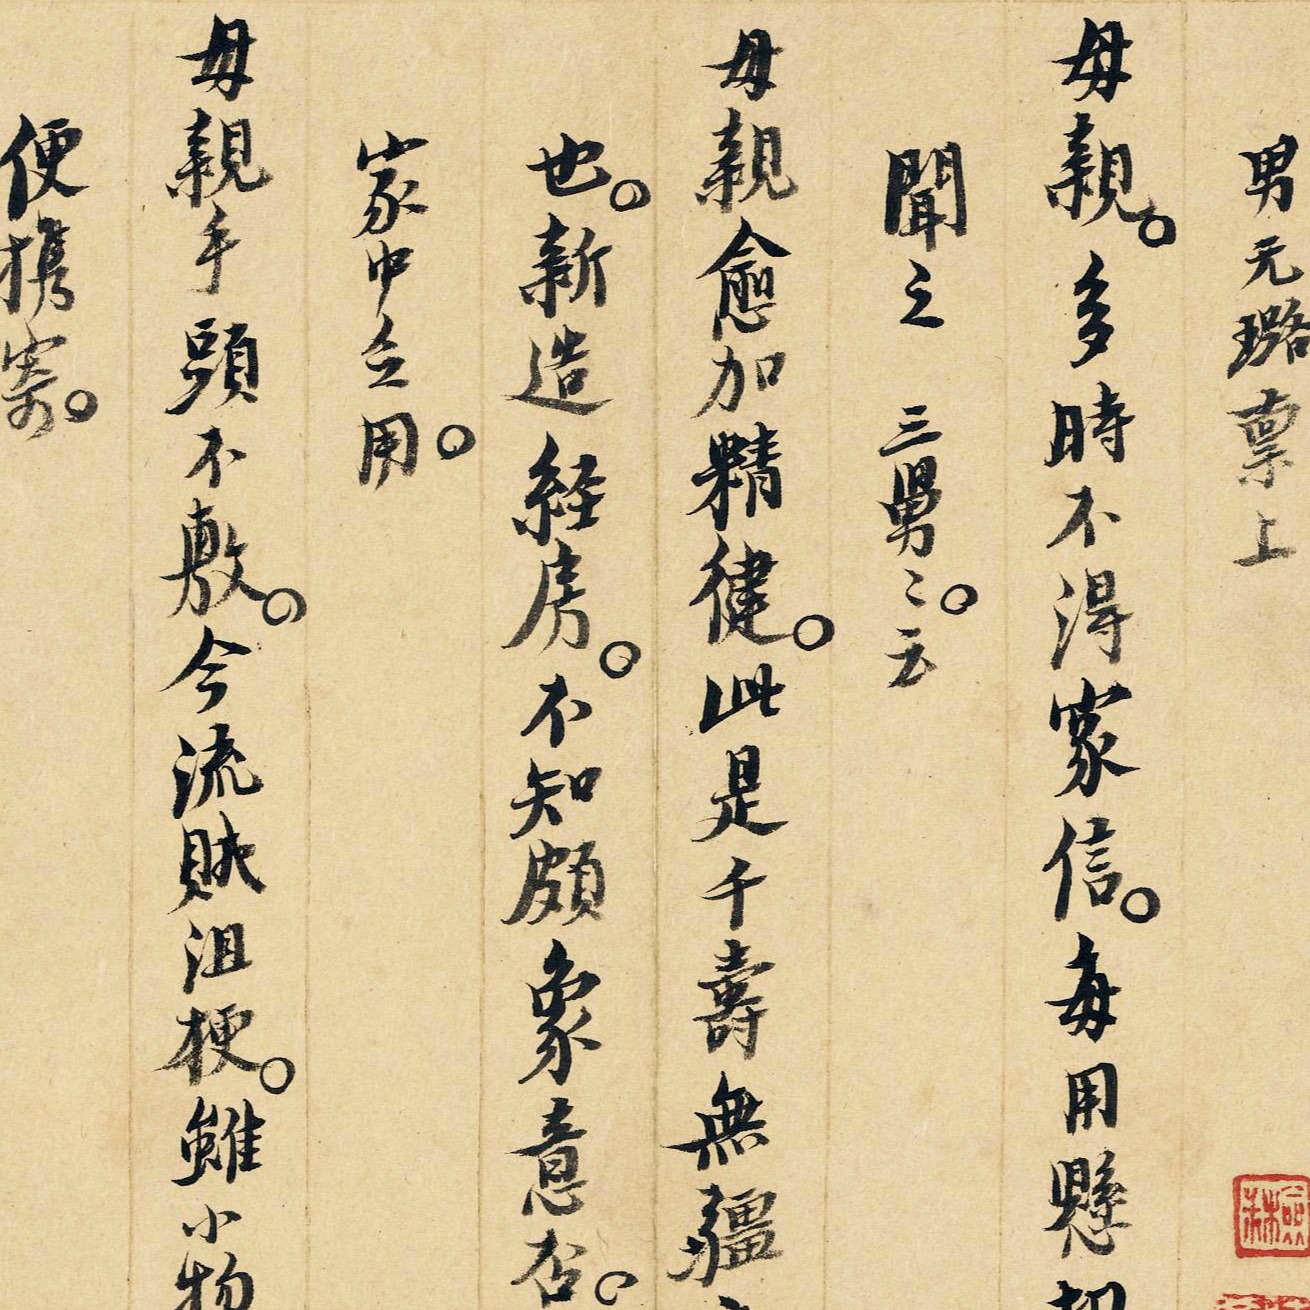 男元璐稟上
母親。多時不得家信。每用懸切
聞之 三舅〻。云
母親愈加精健。此是千壽無疆
也。新造経房。不知頗象意否。
家中乏用。
母親手頭不敷。今流賊沮梗。雖小物
便携寄。